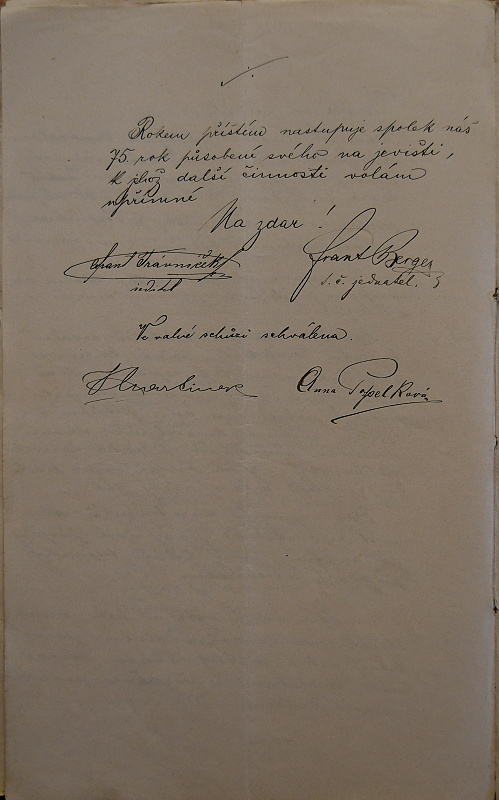 Rokem příštím nastupuje spolek náš
75. rok působení svého na jevišti,
k jehož další činnosti volám
upřímné
Na zdar!
Frant Trávníček Frant Berger
ředitel t. č. jednatel.
Ve valné schůzi schválena.
Anna Popelková